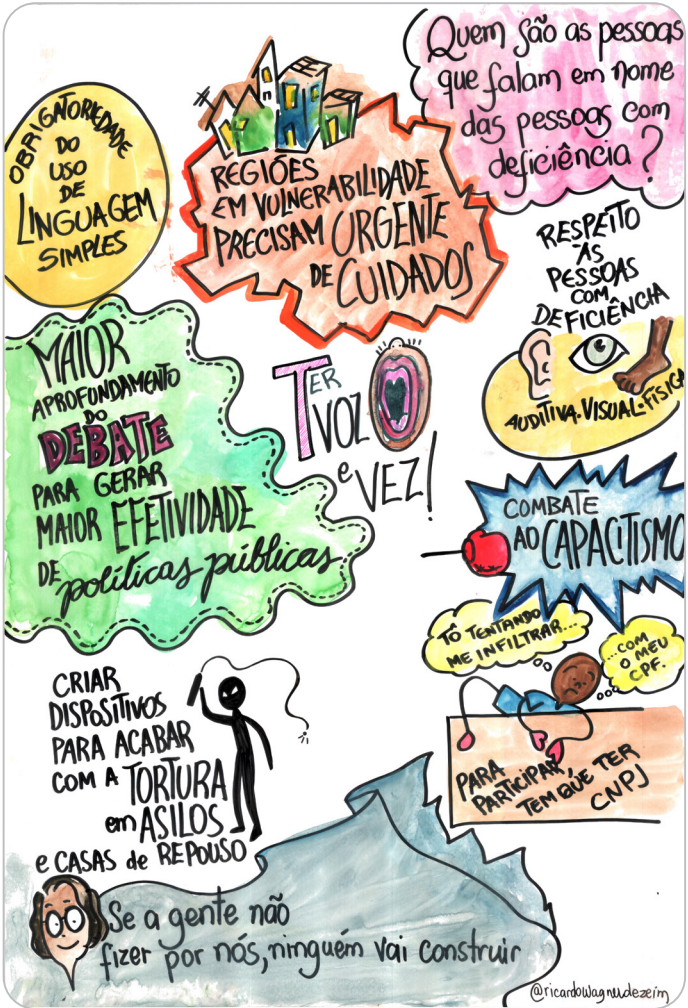 OBRIGATORIEDADE
DO
USO
DE
LINGUAGEM
SIMPLES
REGIÕES
EM VULNERABILIDADE
PRECISAM URGENTE
DE CUIDADOS
Quem são as pessoas
que falam em nome
das pessoas com
deficiência?
RESPEITO
ÀS
PESSOAS
COM
DEFICIÊNCIA
AUDITIVA-VISUAL-FÍSICA
MAIOR
APROFUNDAMENTO
DO
DEBATE
PARA GERAR
MAIOR EFETIVIDADE
DE políticas públicas
TER
VOZ
e
VEZ!
COMBATE
AO CAPACITISMO
TÔ TENTANDO
ME INFILTRAR...
...COM
O MEU
CPF.
PARA
PARTICIPAR,
TEM QUE TER
CNPJ
CRIAR
DISPOSITIVOS
PARA ACABAR
COM A TORTURA
em ASILOS
e CASAS de REPOUSO
Se a gente não
fizer por nós, ninguém vai construir
@ricardowagnerdezeim